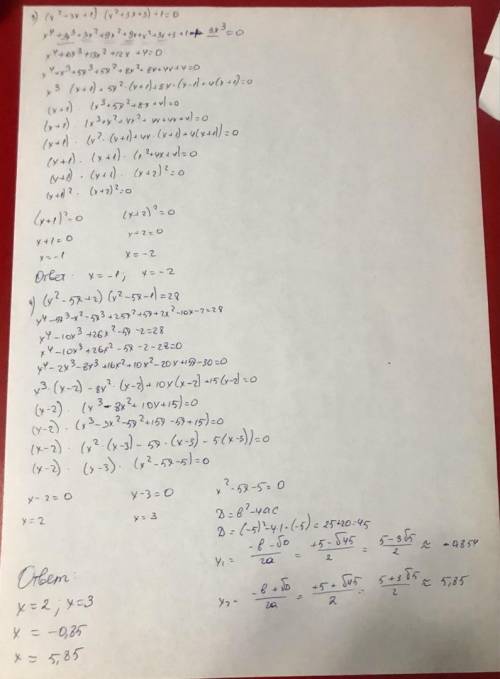 3) (x² - 3x + 1) · (x² + 3x + 3) + 1 = 0
x⁴ + 3x³ + 3x² + 9x² + 9x + x² + 3x + 3 + 1 + 3x³ = 0
x⁴ + 6x³ + 13x² + 12x + 4 = 0
x⁴ + x³ + 5x³ + 5x² + 8x² + 8x + 4x + 4 = 0
x³ · (x+1) + 5x² · (x+1) + 8x · (x+1) + 4(x+1) = 0
(x+1) · (x³ + 5x² + 8x + 4) = 0
(x+1) · (x³ + x² + 4x² + 4x + 4x + 4) = 0
(x+1) · (x² · (x+1) + 4x · (x+1) + 4(x+1)) = 0
(x+1) · (x+1) · (x² + 4x + 4) = 0
(x+1) · (x+1) · (x+2)² = 0
(x+1)² · (x+2)² = 0
(x+1)² = 0 (x+2)² = 0
x+1 = 0 x+2 = 0
x = -1 x = -2
Ответ: x = -1; x = -2
4) (x² - 5x + 2) (x² - 5x - 1) = 28
x⁴ - 5x³ - x² - 5x³ + 25x² + 5x + 2x² - 10x - 2 = 28
x⁴ - 10x³ + 26x² - 5x - 2 = 28
x⁴ - 10x³ + 26x² - 5x - 2 - 28 = 0
x⁴ - 2x³ - 8x³ + 16x² + 10x² - 20x + 15x - 30 = 0
x³ · (x-2) - 8x² · (x-2) + 10x(x-2) + 15(x-2) = 0
(x-2) · (x³ - 8x² + 10x + 15) = 0
(x-2) · (x³ - 3x² - 5x² + 15x - 5x + 15) = 0
(x-2) · (x² · (x-3) - 5x · (x-3) - 5(x-3)) = 0
(x-2) · (x-3) · (x² - 5x - 5) = 0
x - 2 = 0 x - 3 = 0 x² - 5x - 5 = 0
x = 2 x = 3 D = b² - 4ac
D = (-5)² - 4·1·(-5) = 25+20 = 45
x₁ = (-b - √D)/2a = (+5 - √45)/2 = (5 - 3√5)/2 ≈ -0,854
x₂ = (-b + √D)/2a = (+5 + √45)/2 = (5 + 3√5)/2 ≈ 5,85
Ответ:
x = 2; x = 3
x = -0,85
x = 5,85